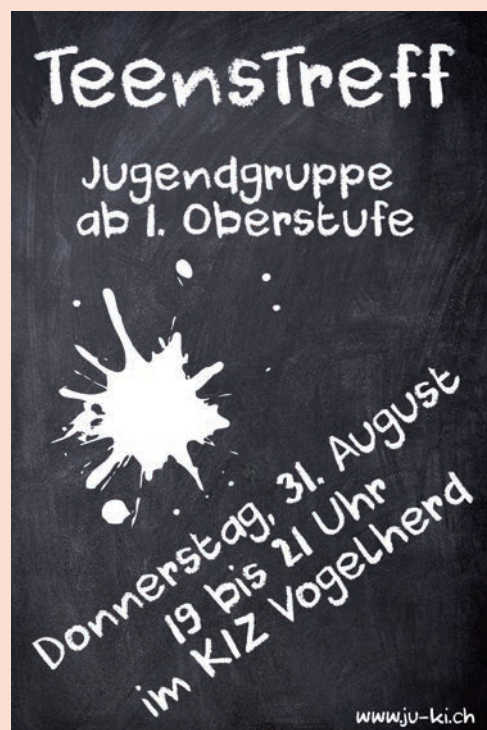 TeensTreff
Jugendgruppe
ab 1. Oberstufe
Donnerstag, 31. August
19 bis 21 Uhr
im KIZ Vogelherd
www.ju-ki.ch